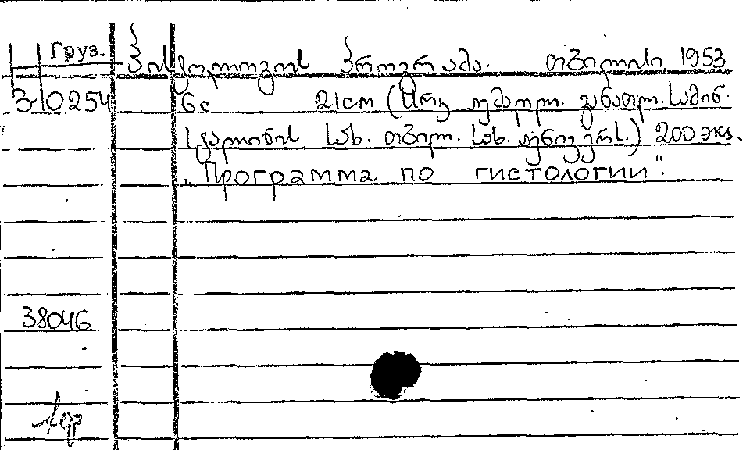 Груз. ჰისტოლოგიის პროგრამა. თბილისი, 1953
პ-10254 6с 21см (სსრკ უმაღლ. განათლ. სამინ.
სტალინის სახ. თბილ. სახ. უნივერს.) 200 экз.
"Программа по гистологии".
38046